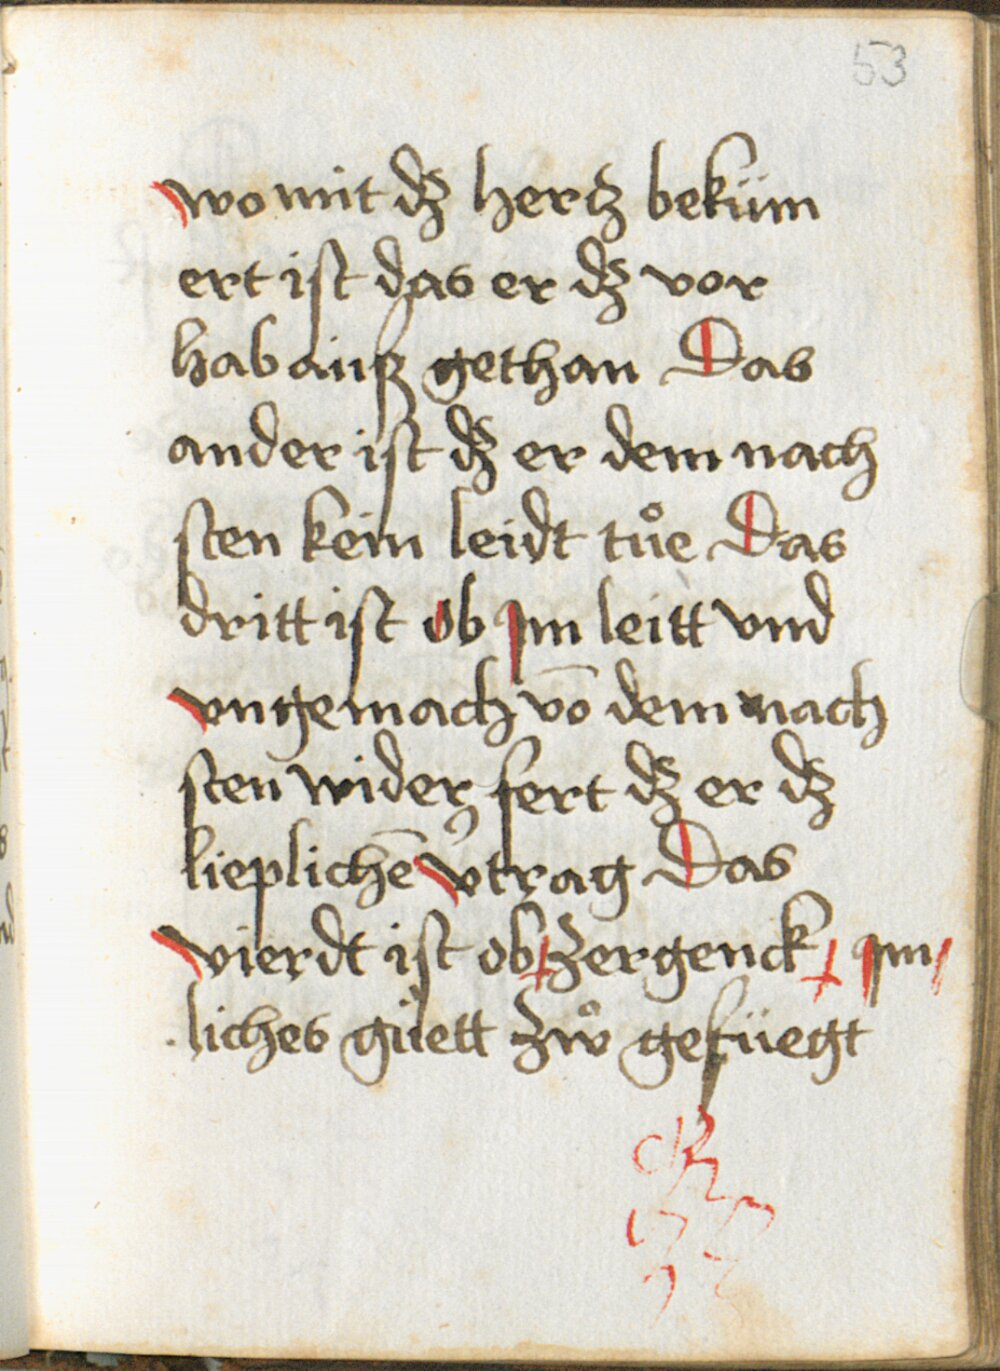 53
wo mit dz hertz beküm
ert ist das er dz vor
hab auß gethan Das
ander ist dz er dem nach
sten kein leidt tůe Das
dritt ist ob jm leitt vnd
vngemach vō dem nach
sten wider fert dz er dz
lieplichē v̓trag Das
vierdt ist ob zergenck jm
liches güett zẘ gefüegt